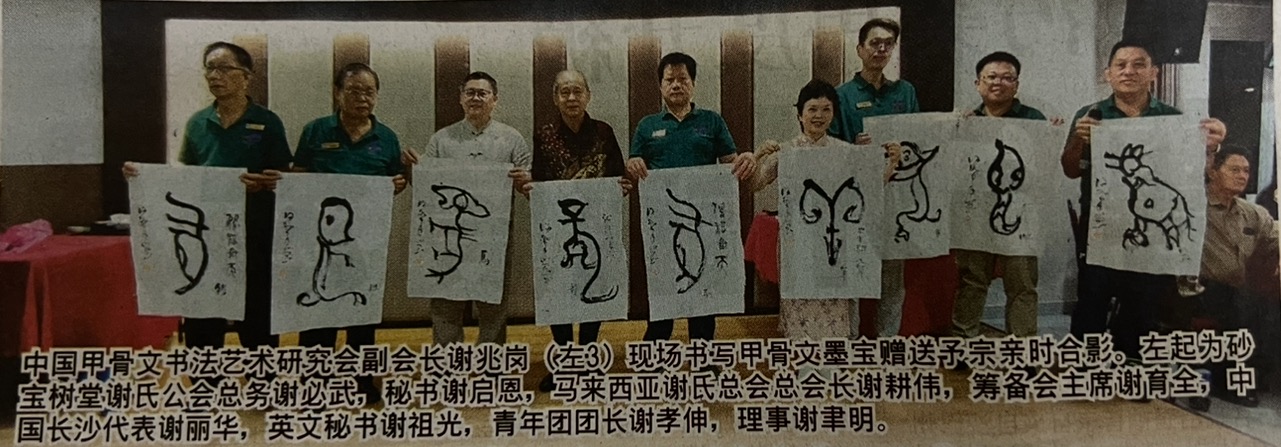 中国甲骨文书法艺术研究会副会长谢兆岗（左3）现场书写甲骨文墨宝赠送予宗亲时合影。左起为砂
宝树堂谢氏公会总务谢必武，秘书谢启恩，马来西亚谢氏总会总会长谢耕伟，筹备会主席谢育全，中
国长沙代表谢丽华，英文秘书谢祖光，青年团团长谢孝伸，理事谢聿明。